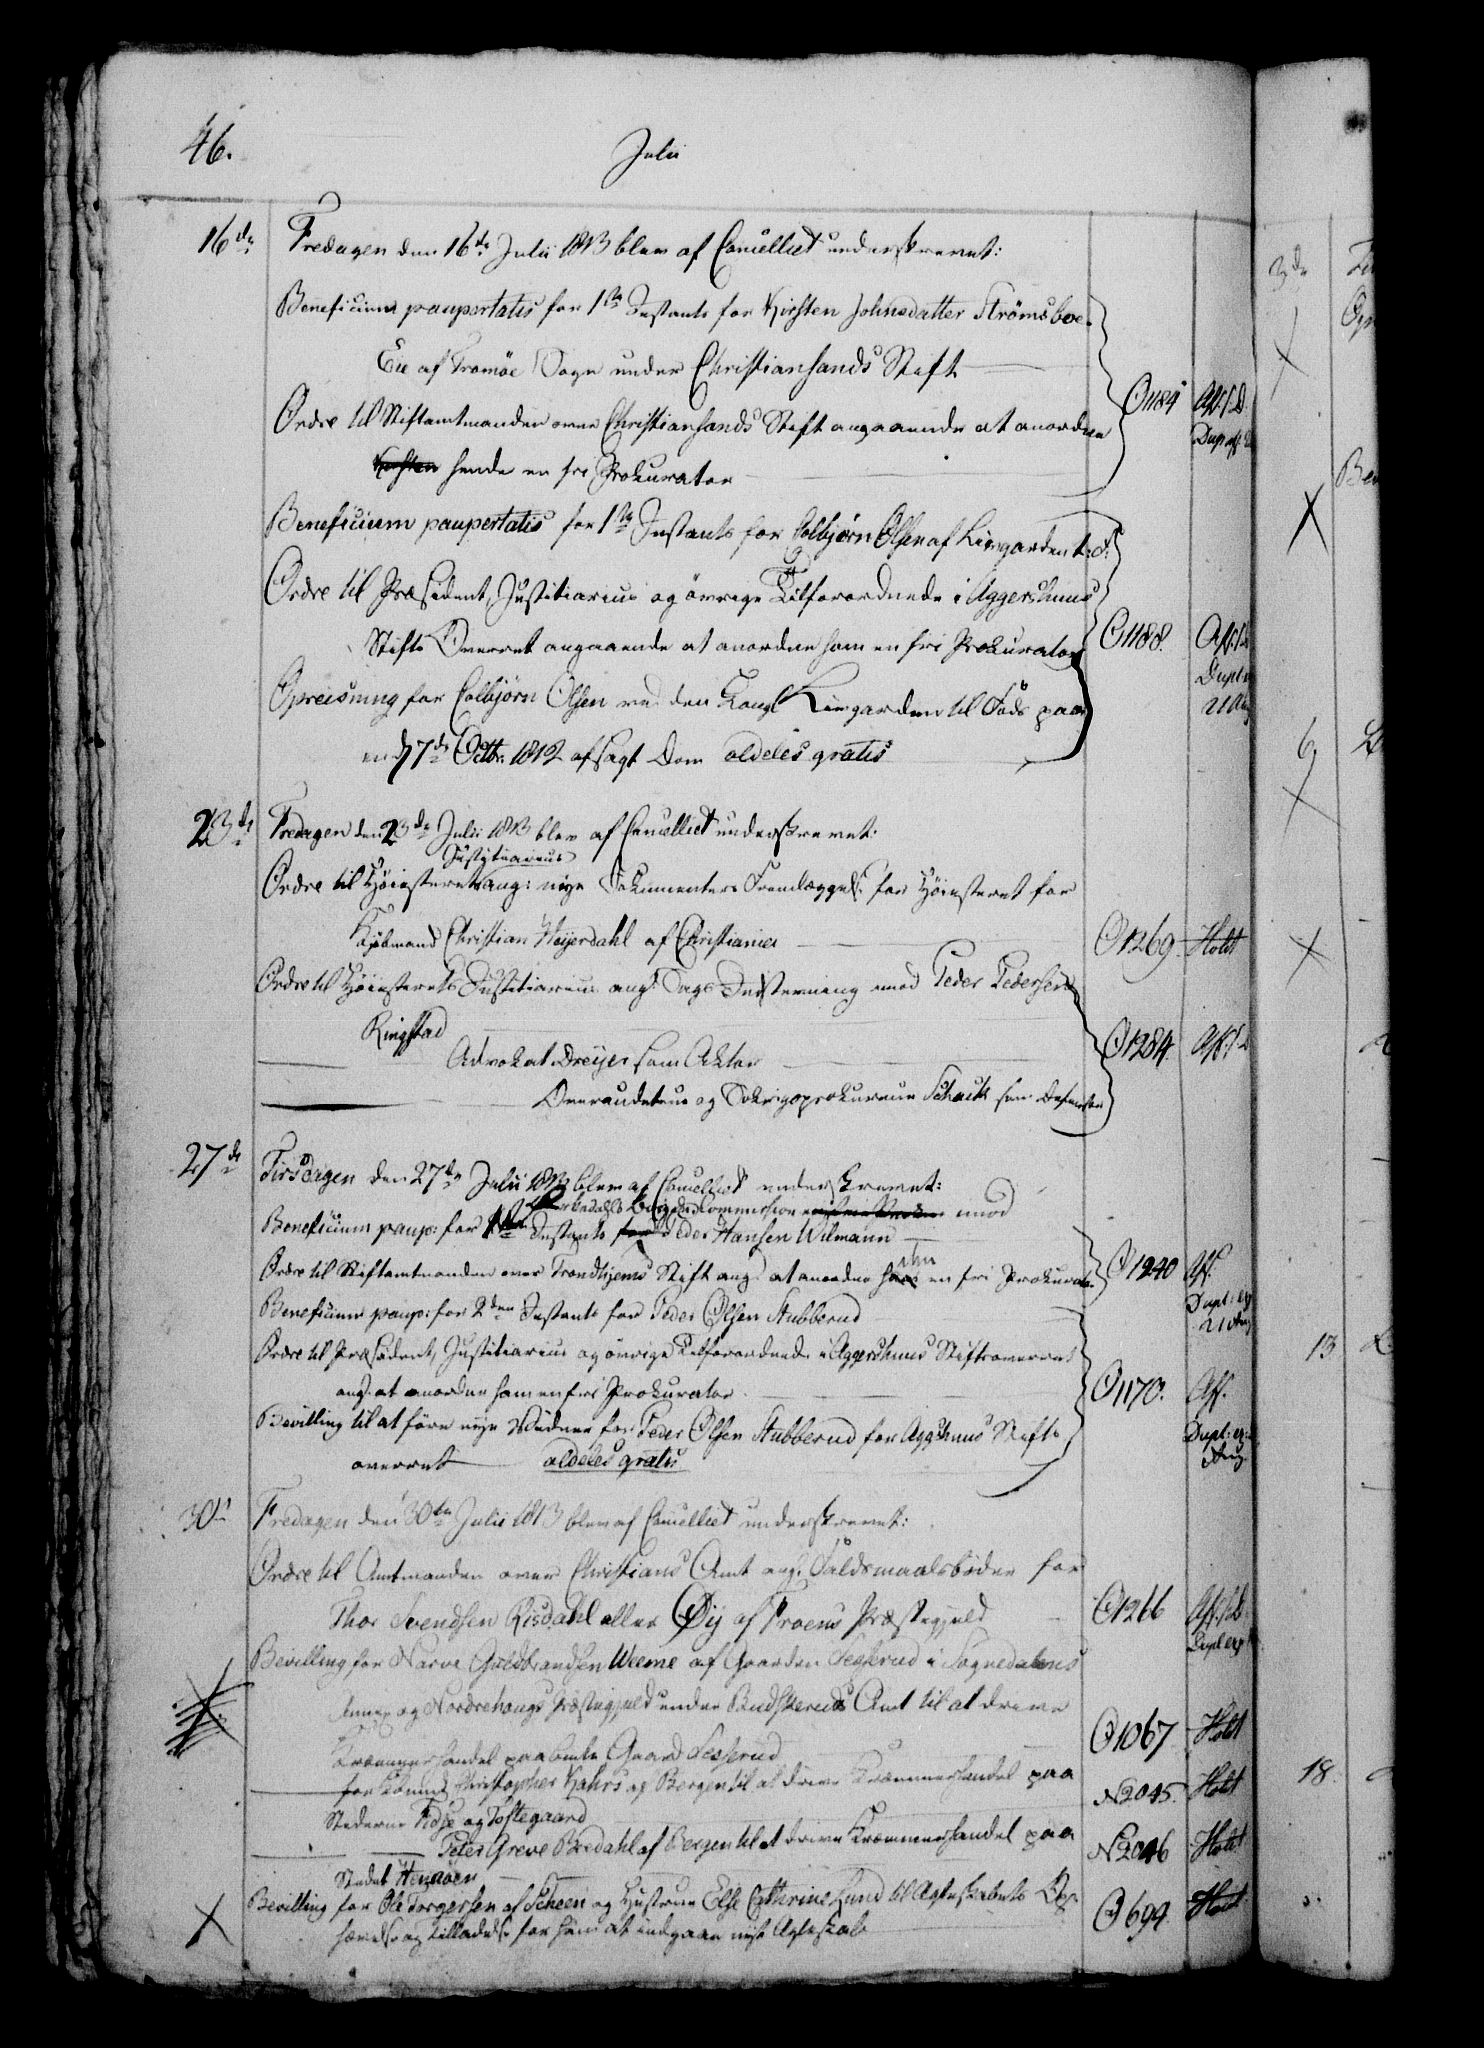 46.
Julii
16de Fredagen den 16de Julii 1813 blev af Cancelliet underskrevet:
Beneficium paupertatis for 1ste Instants for Kirsten Johnsdatter Strömsboe
Eie af Tromöe Sogn under Christiansands Stift
Ordre til Stiftamtmanden over Christiansands Stift angaaende at anordne O1184 Aff. s. D.
Kirsten hende en fri Prokurator Dup. aff.
Beneficium paupertatis for 1ste Instants for Colbjørn Olsen af Liergarden
Ordre til Præsident, Justitiarius og övrige Tilforordnede i Aggershuus
Stifts Overret angaaende at anordne ham en fri Prokurator O1188. Aff. s. D
Dupl.
Opreisning for Colbjørn Olsen ved den Kongl Liergarden til Fods paa 21 Aug
en d. 7de Octbr. 1812 afsagt Dom aldeles gratis
23de Fredagen den 23de Julii 1813 blev af Cancelliet underskrevet:
Justitiarius
Ordre til Höiesterets ang: nye Dokumenters Fremlæggelse for Höiesteret for
Kjöbmand Christian Heyerdahl af Christiania O1269. Holst
Ordre til Höiesterets Justitiarius ang. Sags Indstevning imod Peder Pedersen
Ringstad
Advokat Dreyer som Aktor O1284. Aff. s. D
Overauditeur og Krigsprokureur Schack som Defensor
27de Tirsdagen den 27de Julii 1813 blev af Cancelliet underskrevet:
Commission imod
Beneficium paup: for 1ste Instants for Peder Hansen Wilmann
ihm
Ordre til Stiftamtmanden over Trondhjems Stift ang. at anordne ham en fri Prokurator O1240 Aff.
Beneficium paup: for 2den Instants for Peder Olsen Stubberud Dupl: exp
21 Aug
Ordre til Præsident, Justitiarius og övrige Tilforordnede i Aggershuus Stiftsoverret
ang. at anordne ham en fri Prokurator. O1170. Aff.
Bevilling til at före nye Vidner for Peder Olsen Stubberud for Aggshuus Stifts Dupl: ex:
overret aldeles gratis Aug.
30te Fredagen den 30te Julii 1813 blev af Cancelliet underskrevet:
Ordre til Amtmanden over Christians Amt ang. Faldsmaalsböder for
Thor Svendsen Risdahl eller Öij af Froens Præstegjeld O1266 Aff. s. D.
Dupl exp
Bevilling for Narve Guldbrandsen Weeme af Gaarden Lesserud i Sognedalens
Annex og Nordrehougs Præstegjeld under Buskeruds Amt til at drive
Kræmmerhandel paa bemte Gaard Lesserud O1067 Holst
for Kjöbmd Christopher Kahrs af Bergen til at drive Kræmmerhandel paa N2045. Holst
Stederne Fidje og Toftegaard
Peter Greve Bredahl af Bergen til at drive Kræmmerhandel paa N2046 Holst
Stedet Hennöen
Bevilling for Ole Torgersen af Scheen og Hustrue Else Cathrine Lund til Ægteskabets Op-
hævelse og Tilladelse for ham at indgaae nyt Ægteskab O694. Holst
3de
6
13
18